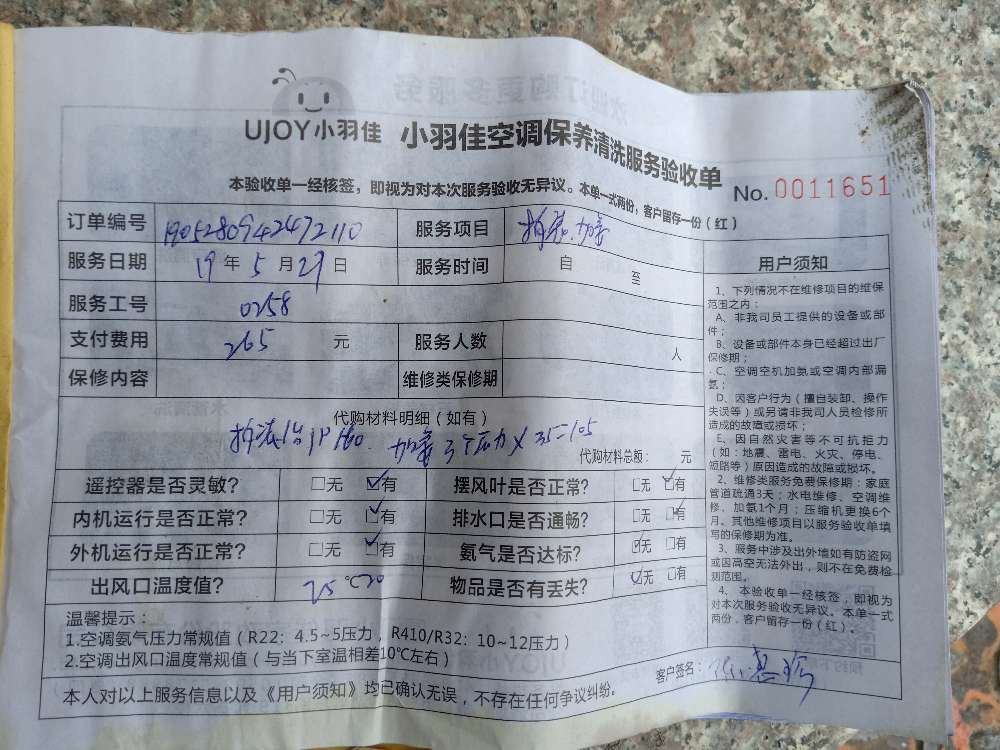 UJOY小羽佳 小羽佳空调保养清洗服务验收单
本验收单一经核签，即视为对本次服务验收无异议。本单一式两份，客户留存一份（红）
No. 0011651
订单编号 1905280942472110 服务项目 拆装.加氨
服务日期 19年5月29日 服务时间 自 至
服务工号 0258
支付费用 265 元 服务人数 人
保修内容 维修类保修期
代购材料明细（如有）
拆装1台1P 160 加氨3个压力×35=105
代购材料总额： 元
遥控器是否灵敏? □无 ☑有 摆风叶是否正常? □无 ☑有
内机运行是否正常? □无 ☑有 排水口是否通畅? □无 ☑有
外机运行是否正常? □无 ☑有 氨气是否达标? ☑无 □有
出风口温度值? 物品是否有丢失? ☑无 □有
温馨提示：
1.空调氨气压力常规值（R22：4.5~5压力，R410/R32：10~12压力）
2.空调出风口温度常规值（与当下室温相差10℃左右）
客户签名：
本人对以上服务信息以及《用户须知》均已确认无误，不存在任何争议纠纷。
用户须知
1、下列情况不在维修项目的维保
范围之内；
A、非我司员工提供的设备或部
件；
B、设备或部件本身已经超过出厂
保修期；
C、空调空机加氨或空调内部漏
氨；
D、因客户行为（擅自装卸、操作
失误等）或另请非我司人员检修所
造成的故障或损坏；
E、因自然灾害等不可抗拒力
（如：地震、雷电、火灾、停电、
短路等）原因造成的故障或损坏。
2、维修类服务免费保修期：家庭
管道疏通3天；水电维修、空调维
修、加氨1个月；压缩机更换6个
月。其他维修项目以服务验收单填
写的保修期为准。
3、服务中涉及出外墙如有防盗网
或因高空无法外出，则不在免费检
测范围。
4、本验收单一经核签，即视为
对本次服务验收无异议。本单一式
两份，客户留存一份（红）。